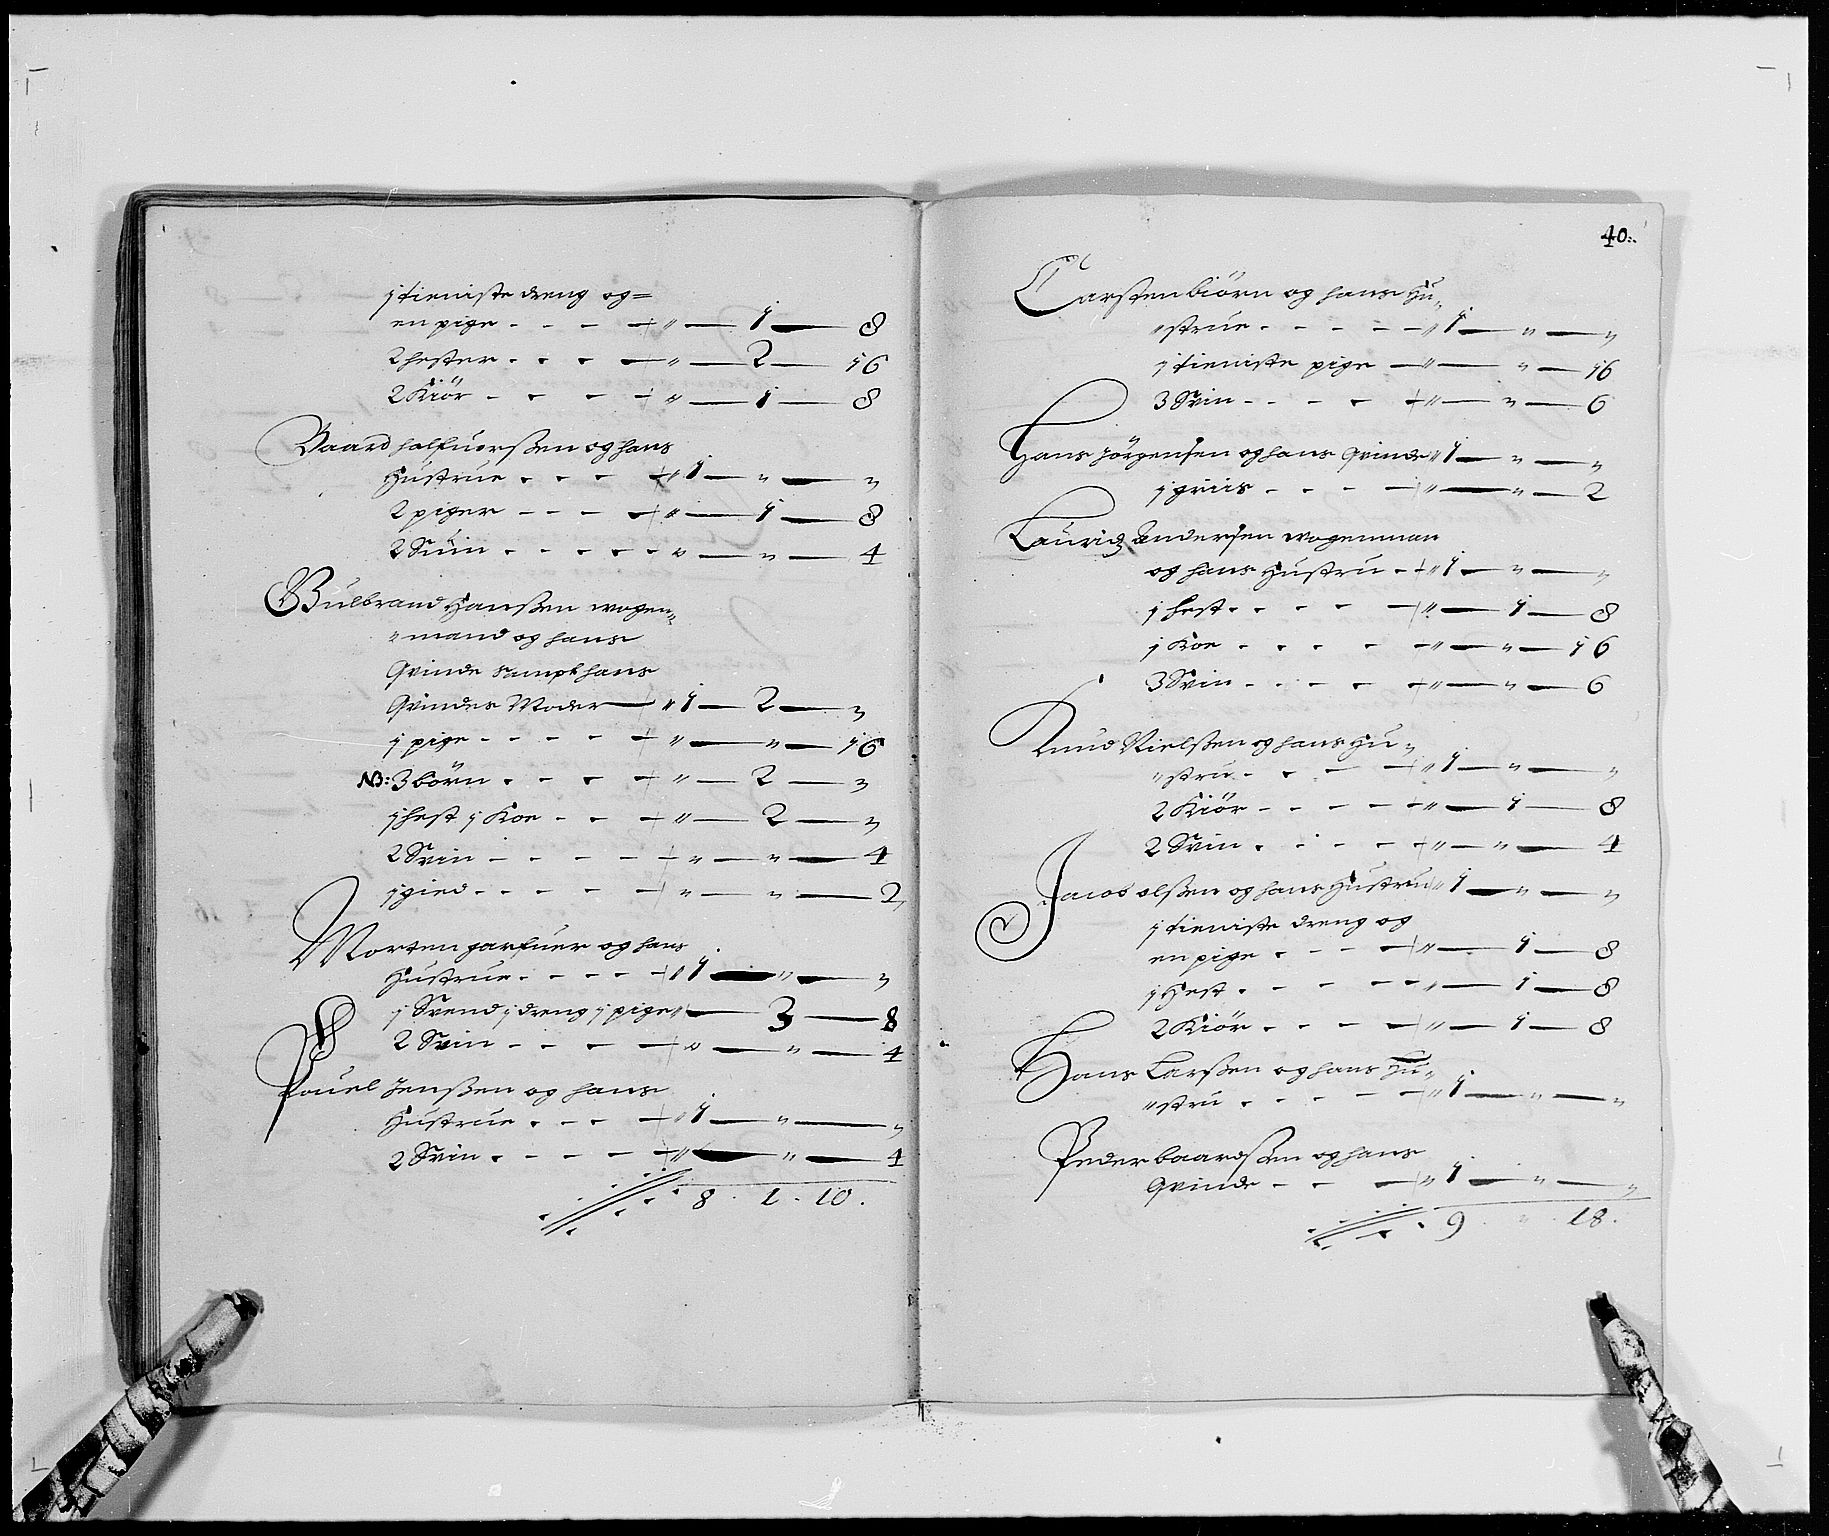 j tieniste dreng og=
en pige - - - - " — 1 — 8
2 hester - - - - " — 2 — 16
2 Kiör - - - - " — 1 — 8
Baard halfuorßen og hans
Hustrue - - - - " 1 — " — "
2 piger - - - - " — 1 — 8
2 Suin - - - - " — " — 4
Gulbrand Hanßen wogen„
„mand og hans
Qvinde sampt hans
Qvindes Moder — " 1 — 2 — "
j pige - - - - " — " — 16
NB: 3 börn - - - - " — 2 — "
j hest j Koe - - - " — 2 — "
2 Svin - - - - " — " — 4
j gied - - - - " — " — 2
Morten garfuer og hans
Hustrue - - - - " 1 — " — "
j Svend j dreng j pige " — 3 — 8
2 Svin - - - - " — " — 4
Pouel Jenßen og hans
Hustrue - - - - " 1 — " — "
2 Svin - - - - " — " — 4
8 . 1 . 10 .
40:.
Carsten biörn og hans Hu„
„strue - - - - " 1 — " — "
j tieniste pige — " — " — 16
3 Svin - - - - " — " — 6
Hans Jörgensen og hans Qvinde " 1 — " — "
j griis - - - - " — " — 2
Lauridz Andersen wogenman
og hans Hustru - " 1 — " — "
j hest - - - - " — 1 — 8
j Koe - - - - " — " — 16
3 Svin - - - - " — " — 6
Knud Nielßen og hans Hu„
„stru - - - - " 1 — " — "
2 Kiör - - - - " — 1 — 8
2 Svin - - - - " — " — 4
Jacob olßen og hans Hustru " 1 — " — "
j tieniste dreng og
en pige - - - - " — 1 — 8
j Hest - - - - " — 1 — 8
2 Kiör - - - - " — 1 — 8
Hans Larßen og hans Hu„
„stru - - - - " 1 — " — "
Peder baardßen og hans
Qvinde - - - - " 1 — " — "
9 . " . 18 .